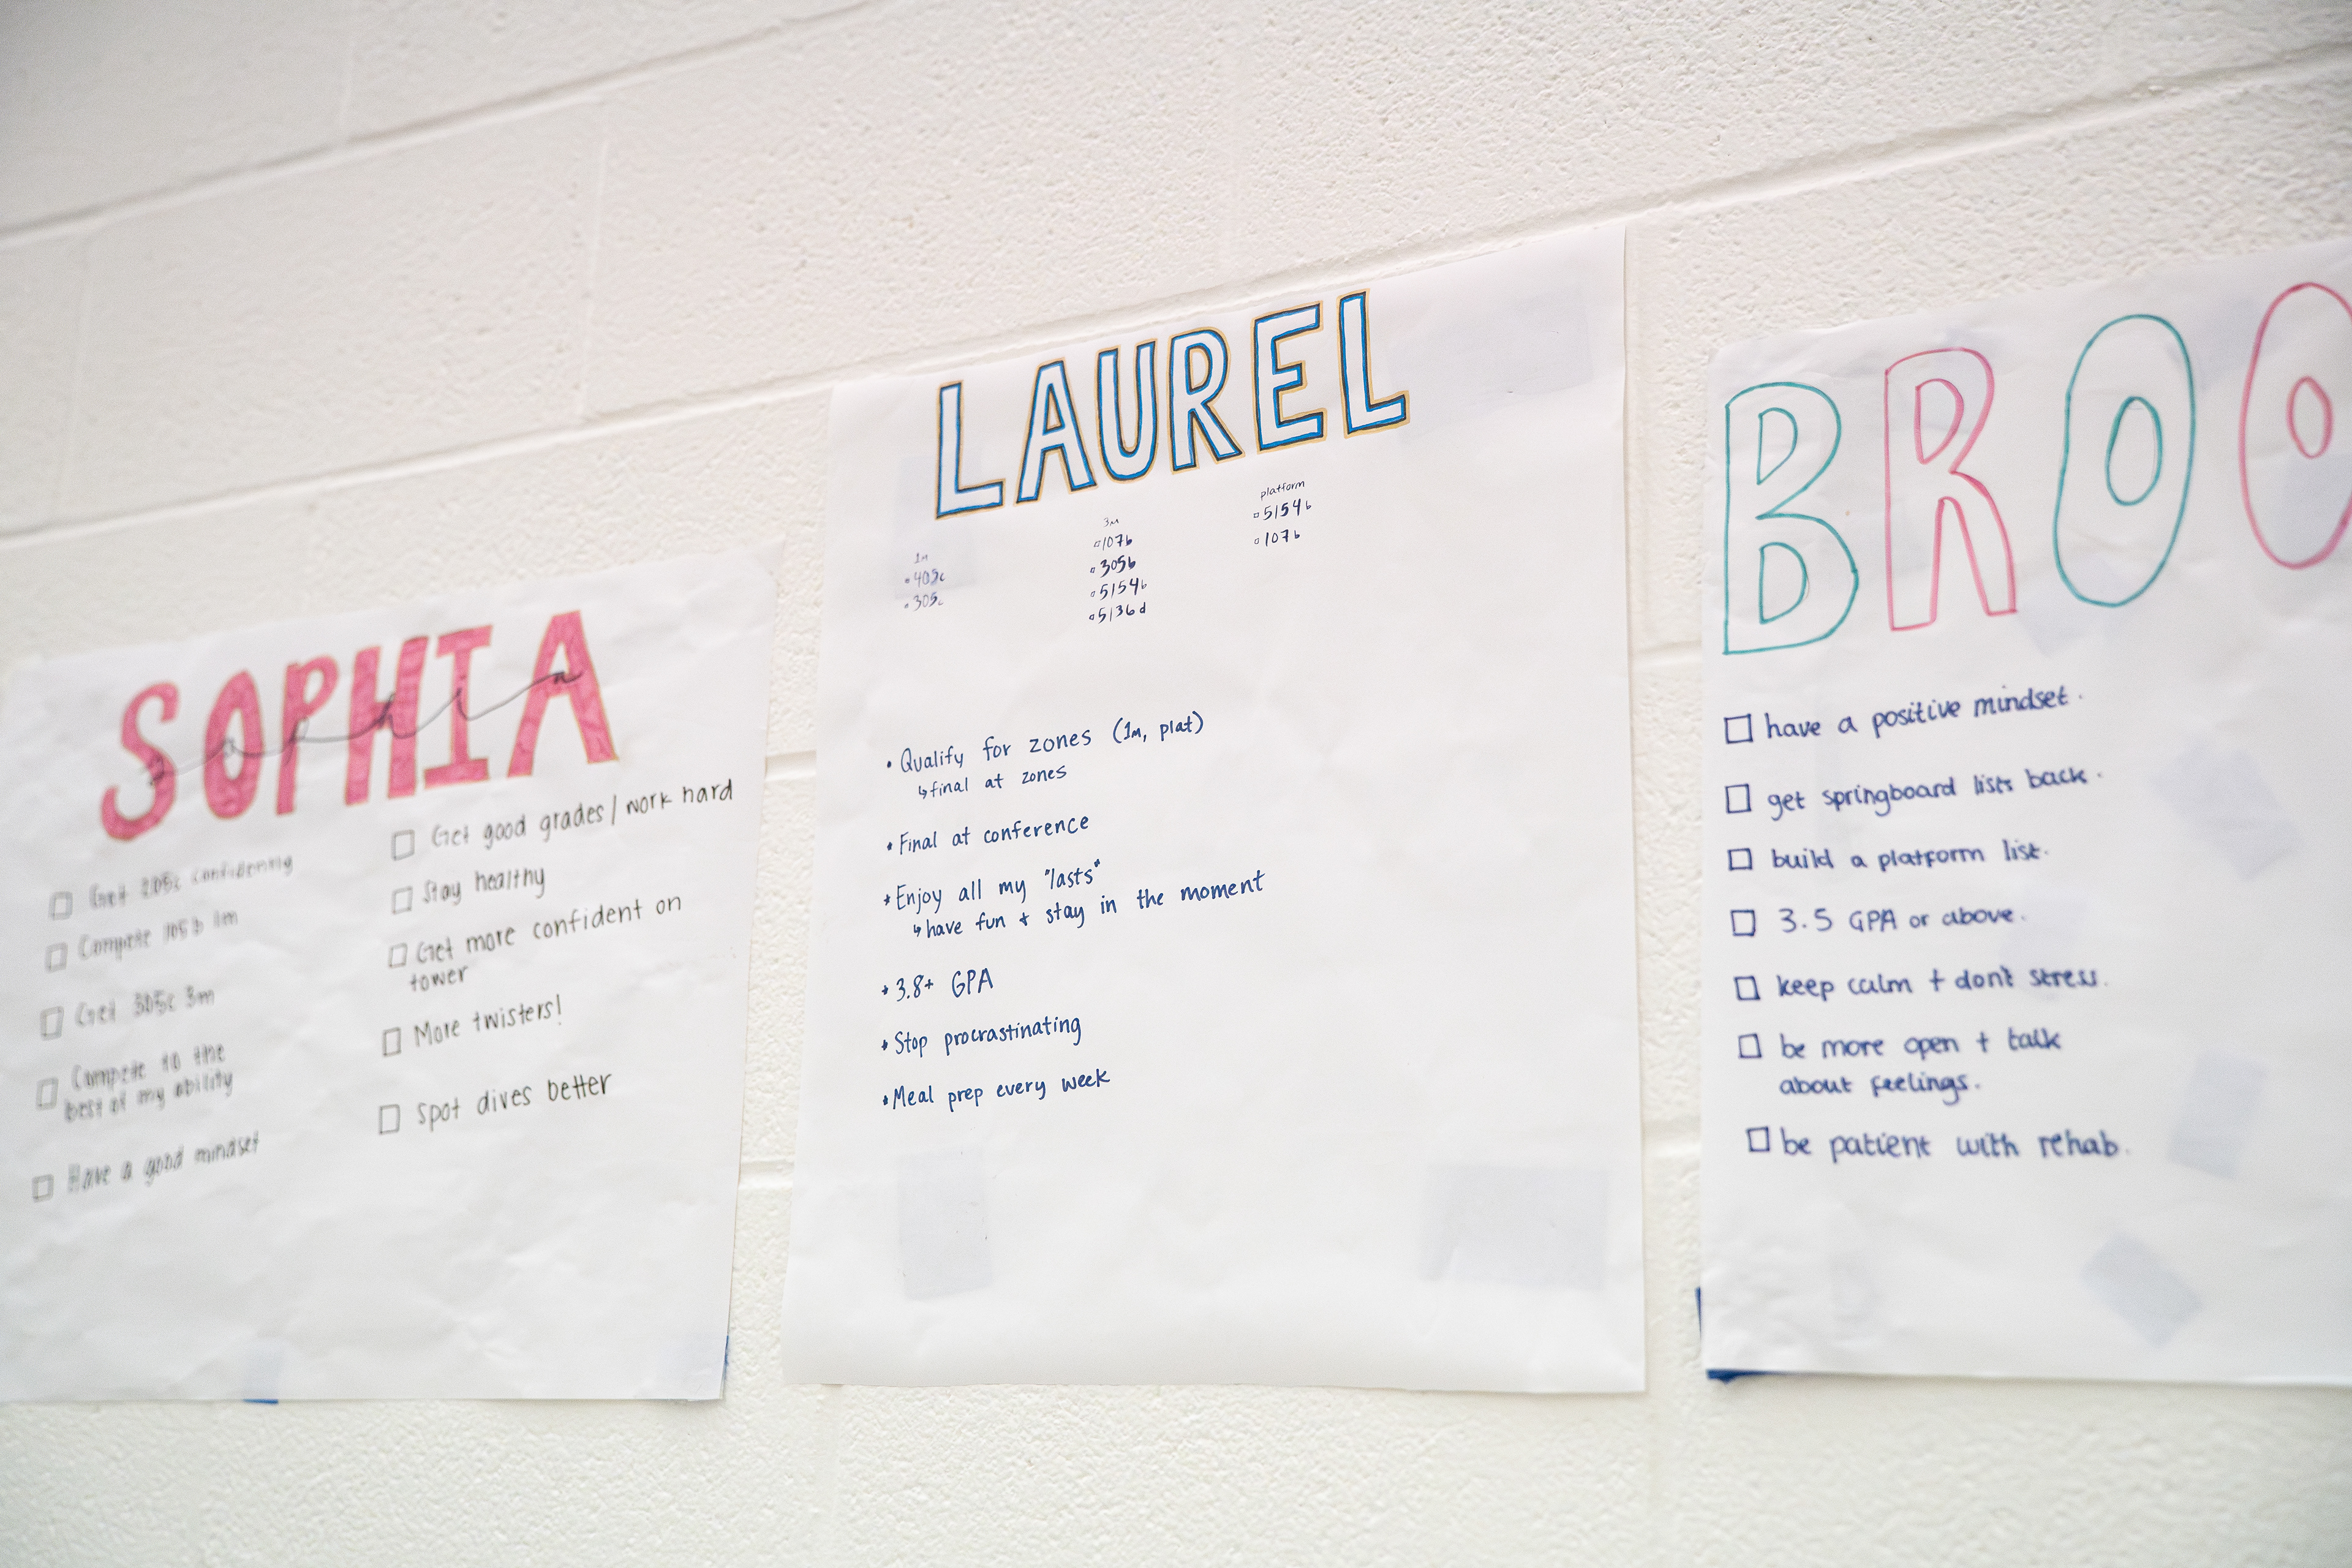 SOPHIA
Get confidently
Compete 105b 1m
Get 305c 3m
Compete to the
best of my ability
Have a good mindset
Get good grades/work hard
Stay healthy
Get more confident on
tower
More twisters!
Spot dives better
LAUREL
1m
405c
305c
3m
107b
305b
5154b
5136d
platform
5154b
107b
• Qualify for zones (1m, plat)
↳ final at zones
• Final at conference
• Enjoy all my "lasts"
↳ have fun + stay in the moment
• 3.8+ GPA
• Stop procrastinating
• Meal prep every week
BROO
have a positive mindset.
get springboard lists back.
build a platform list.
3.5 GPA or above.
keep calm + don't stress.
be more open + talk
about feelings.
be patient with rehab.